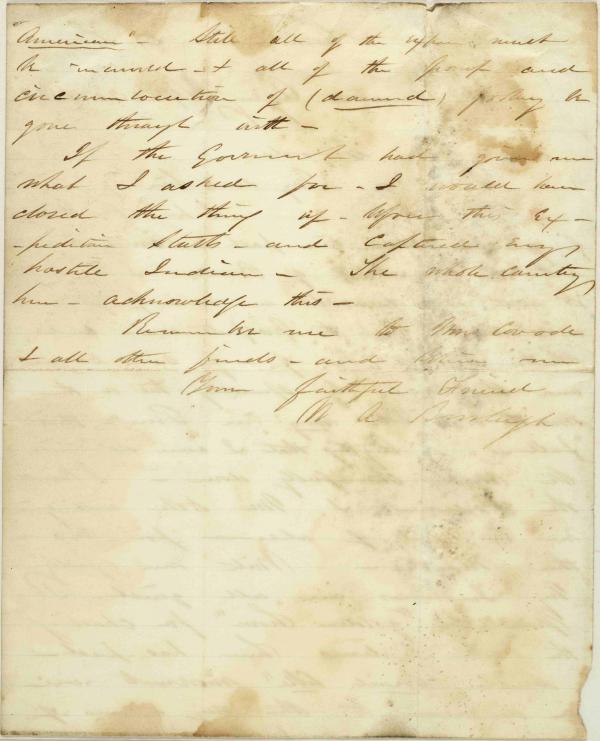 "American" - Still all of the must
be - & all of the and
circumlocution of (damned) be
gone through with -
If the Government had given me
what I asked for - I would have
closed the thing up - before this Ex-
-pedition Starts - and Captured every
hostile Indian - The whole country
here - acknowledge this -
Remember me to Covode
& all other friends - and me
Your faithful Friend
W A Burleigh